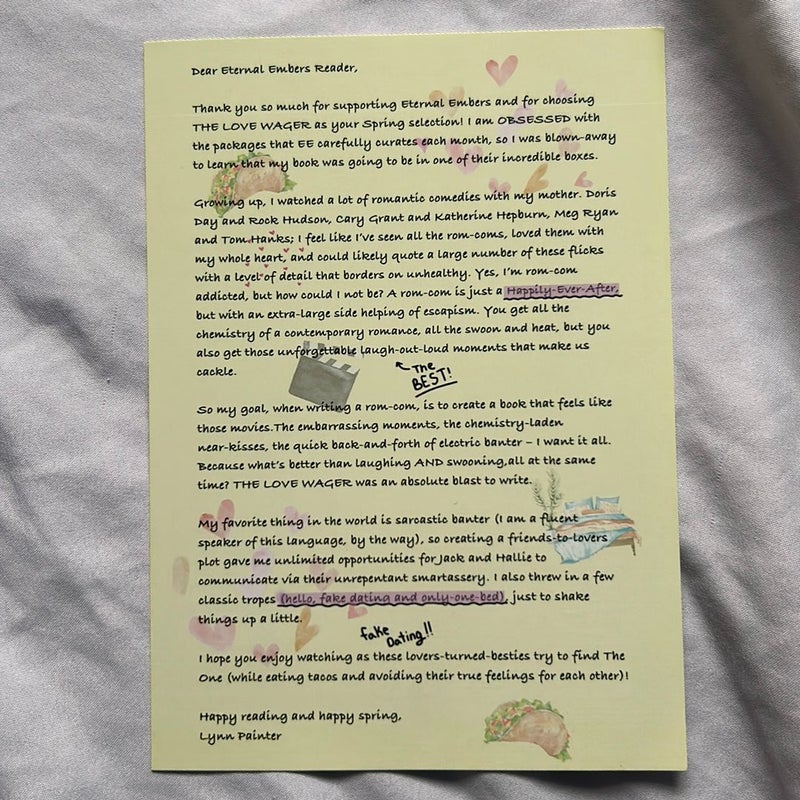 Dear Eternal Embers Reader,
Thank you so much for supporting Eternal Embers and for choosing
THE LOVE WAGER as your Spring selection! I am OBSESSED with
the packages that EE carefully curates each month, so I was blown-away
to learn that my book was going to be in one of their incredible boxes.
Growing up, I watched a lot of romantic comedies with my mother. Doris
Day and Rock Hudson, Cary Grant and Katherine Hepburn, Meg Ryan
and Tom Hanks; I feel like I've seen all the rom-coms, loved them with
my whole heart, and could likely quote a large number of these flicks
with a level of detail that borders on unhealthy. Yes, I'm rom-com
addicted, but how could I not be? A rom-com is just a Happily-Ever-After,
but with an extra-large side helping of escapism. You get all the
chemistry of a contemporary romance, all the swoon and heat, but you
also get those unforgettable laugh-out-loud moments that make us
cackle.
The
BEST!
So my goal, when writing a rom-com, is to create a book that feels like
those movies.The embarrassing moments, the chemistry-laden
near-kisses, the quick back-and-forth of electric banter – I want it all.
Because what's better than laughing AND swooning,all at the same
time? THE LOVE WAGER was an absolute blast to write.
My favorite thing in the world is sarcastic banter (I am a fluent
speaker of this language, by the way), so creating a friends-to-lovers
plot gave me unlimited opportunities for Jack and Hallie to
communicate via their unrepentant smartassery. I also threw in a few
classic tropes (hello, fake dating and only-one-bed), just to shake
things up a little.
fake
Dating!!
I hope you enjoy watching as these lovers-turned-besties try to find The
One (while eating tacos and avoiding their true feelings for each other)!
Happy reading and happy spring,
Lynn Painter